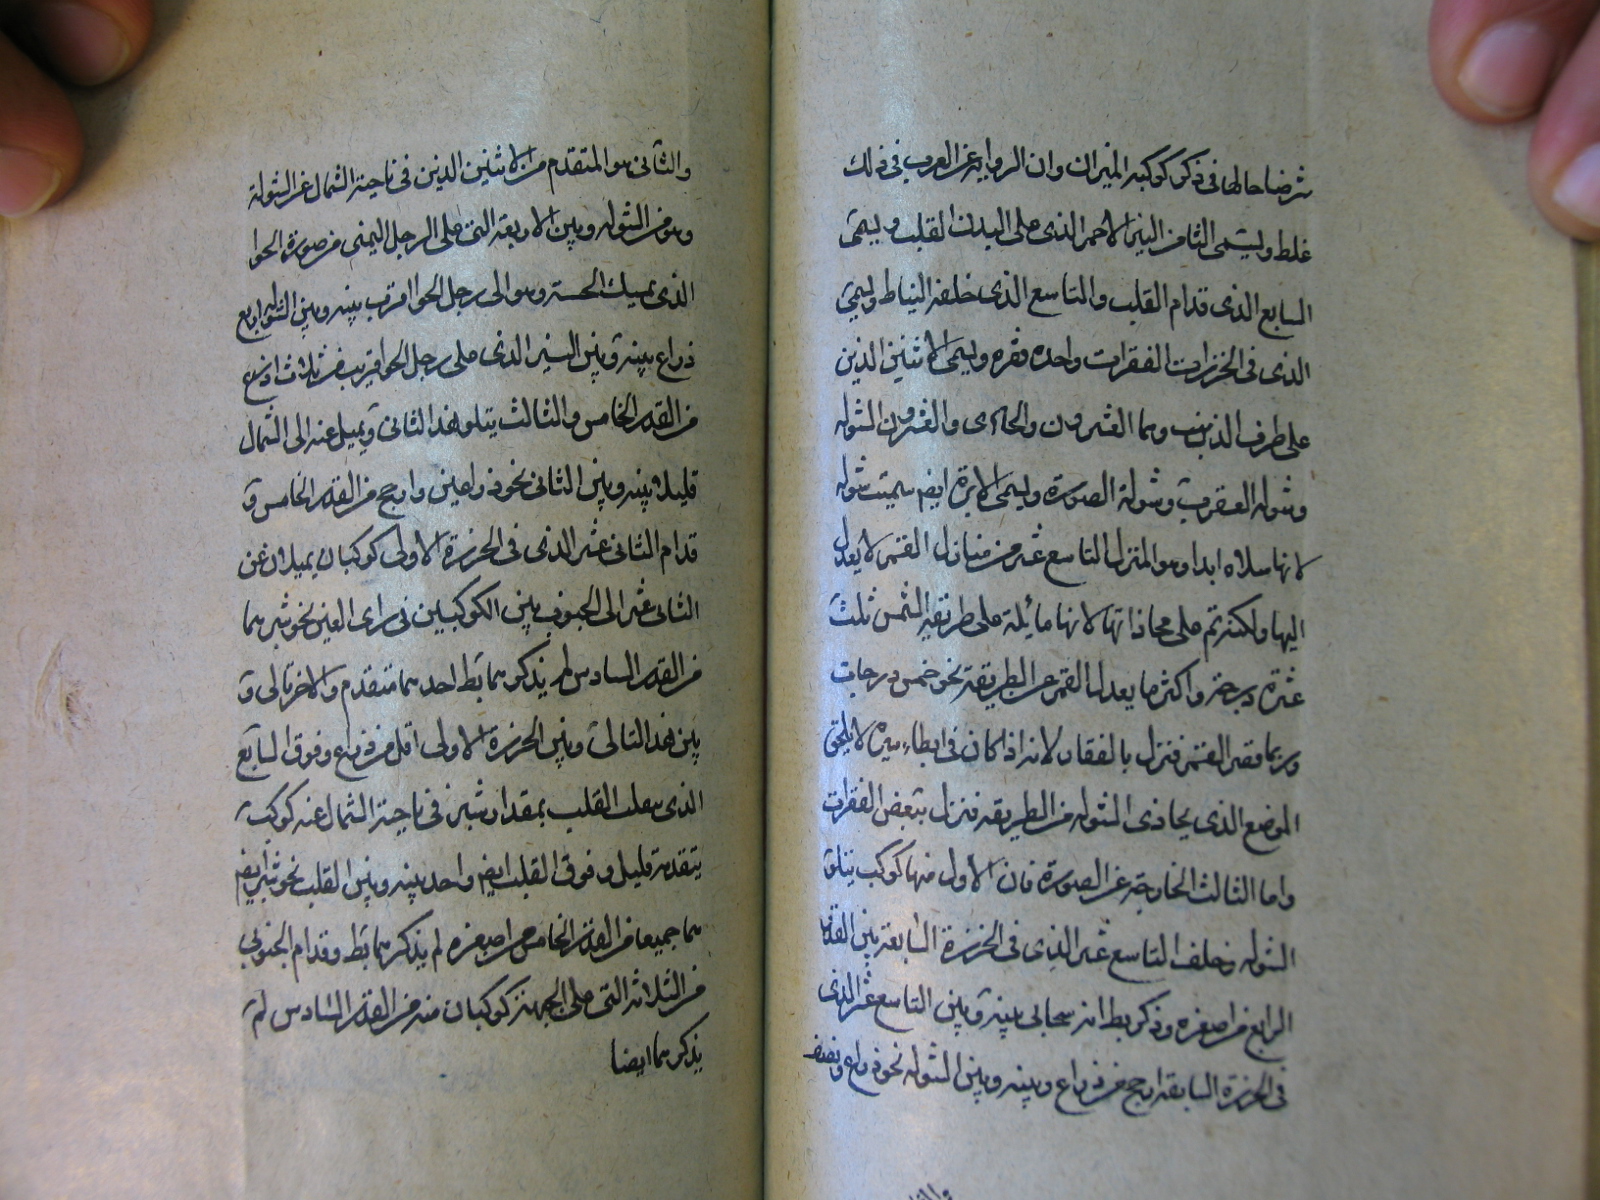 شرحنا حالها فى ذكر كوكبه الميزان وان الرواية عن العرب فى ذلك
غلط ويسمى الثامن النير الاحمر الذى على البدن القلب ويسمى
السابع الذى قدام القلب والتاسع الذى خلفه النياط ويسمى
الذى فى الخرزات الفقرات واحده فقره ويسمى الاثنين الذين
على طرف الذنب وهما العشرون والحادى والعشرون الشوله
وشوله العقرب وشولة الصورة ويسمى الابرة ايضا سميت شوله
لانها مشلاه ابدا وهو المنزل التاسع عشر من منازل القمر لا يعدل
اليها ولكنه يتم على محاذاتها لانها مائلة على طريقه الشمس ثلث
عشرة درجة واكثر ما يعدل القمر عن الطريقة نحو خمس درجات
وربما قصر القمر فنزل بالفقار لانه اذا كان فى ابطاء سيره لا يلحق
الموضع الذى يحاذى الشوله من الطريقه فنزل ببعض الفقرات
واما الثالث الخارجة عن الصورة فان الاول منها كوكب يتلو
الشوله وخلف التاسع عشر الذى فى الخرزة السابعة بين القدر
الرابع من اصغره وذكر بط انه سحابى بينه وبين التاسع عشر الذى
فى الخرزة السابعة ارجح من ذراع وبينه وبين الشوله نحو ذراع ونصف
والثانى هو المتقدم من الاثنين الذين فى ناحية الشمال عن الشولة
وهو من الشوله وبين الاربعة التى على الرجل اليمنى من صورة الحوا
الذى يمسك الحية وهو الى رجل الحوا اقرب بينه وبين الشوله اربع
ذراع بينه وبين النير الذى على رجل الحوا قريب من ثلاث اذرع
من القدر الخامس والثالث يتلو هذا الثانى ويميل عنه الى الشمال
قليلا بينه وبين الثانى نحو ذراعين وارجح من القدر الخامس و
قدام الثانى عشر الذى فى الخرزة الاولى كوكبان يميلان عن
الثانى عشر الى الجنوب بين الكوكبين فى راى العين نحو شبر هما
من القدر السادس لم يذكرهما بط احدهما متقدم والاخر تالى و
بين هذا التالى وبين الخرزة الاولى اقل من ذراع وفوق السابع
الذى القلب بمقدار شبر فى ناحية الشمال عنه كوكب
يتقدمه قليل وفوق القلب ايضا واحد بينه وبين القلب نحو شبر ايضا
هما جميعا من القدر الخامس من اصغره لم يذكرهما بط وقدام الجنوبى
من الثلاثة التى على الجبهة كوكبان منه من القدر السادس لم
يذكرهما ايضا